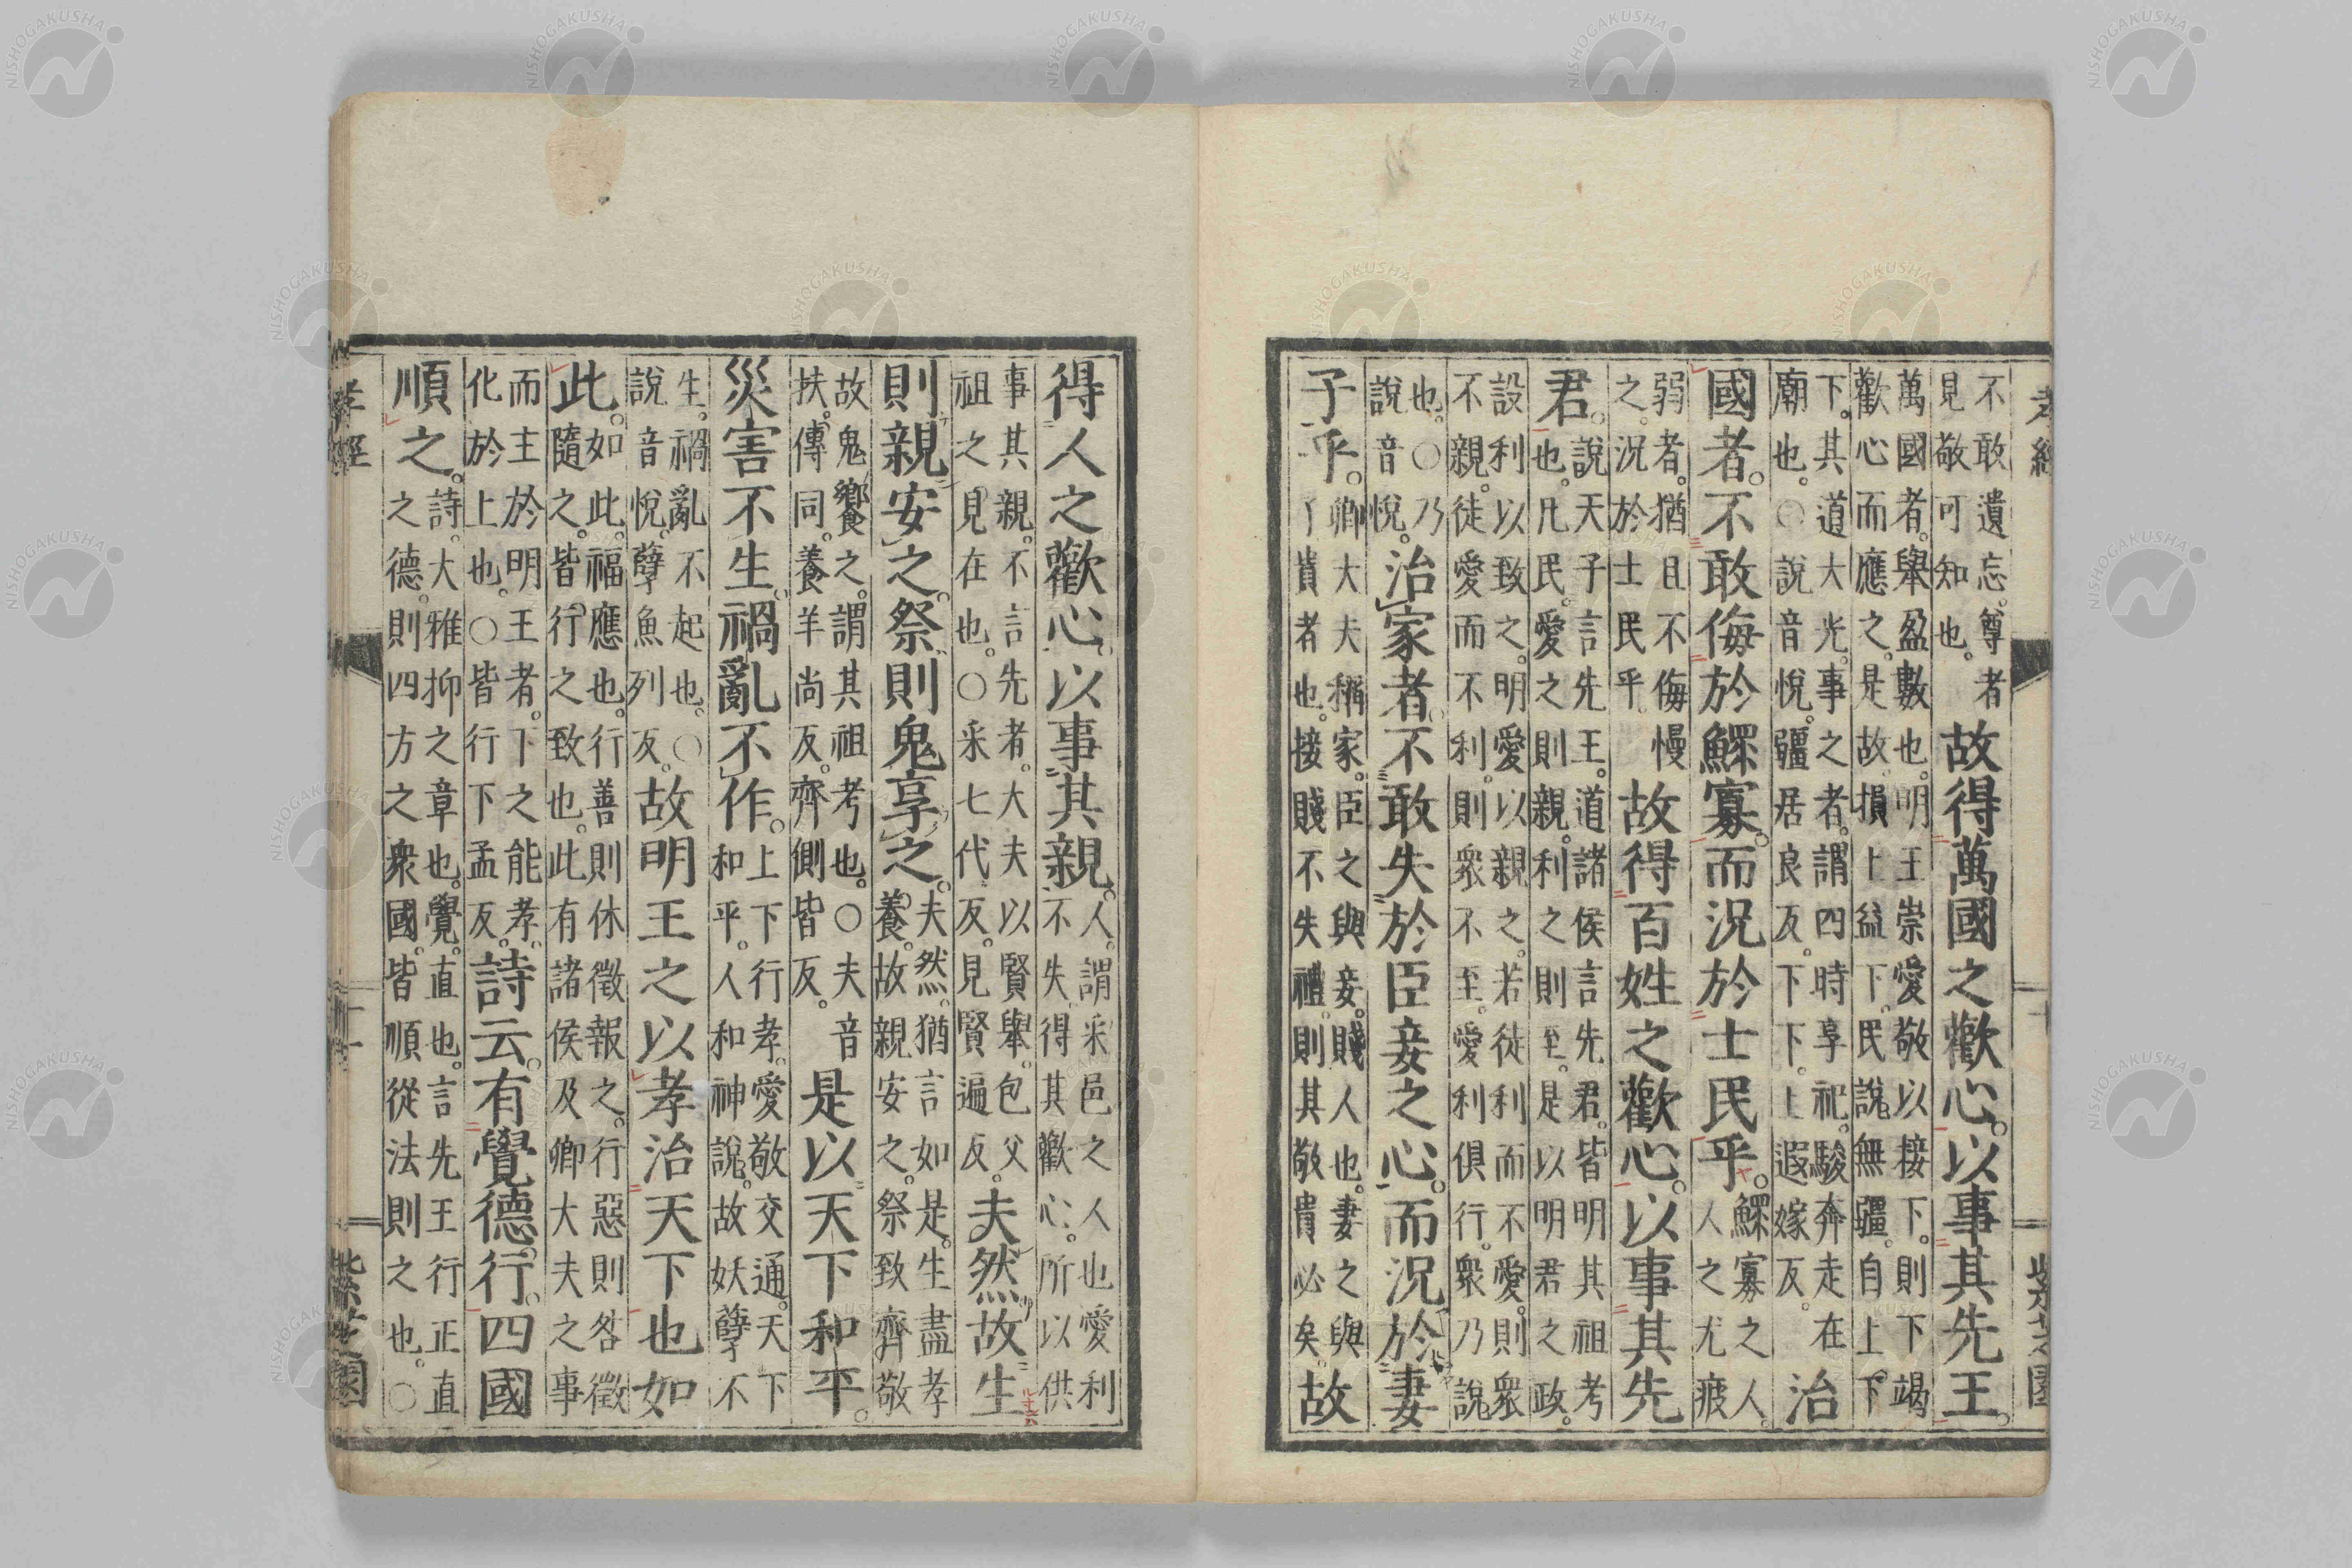 孝經
紫芝園
不敢遺忘。尊者
見敬可知也。
故得萬國之歡心。以事其先王。
萬國者。舉盈數也。明王崇愛敬以接下。則下竭
歡心而應之。是故損上益下。民說無疆。自上下
下。其道大光。事之者。謂四時享祀。駿奔走在
廟也。○說音悅。疆居良反。下下。上遐嫁反。
治
國者。不敢侮於鰥寡。而況於士民乎。
鰥寡之人。
人之尤疲
弱者。猶且不侮慢
之。況於士民乎。
故得百姓之歡心。以事其先
君。
說天子言先王。道諸侯言先君。皆明其祖考
也。凡民。愛之則親。利之則至。是以明君之政。
設利以致之。明愛以親之。若徒利而不愛。則衆
不親。徒愛而不利。則衆不至。愛利俱行。衆乃說
也。○乃
說音悅。
治家者。不敢失於臣妾之心。而況於妻
子乎。
卿大夫稱家。臣之與妾。賤人也。妻之與
貴者也。接賤不失禮。則其敬貴必矣。
故
得人之歡心。以事其親。
人。謂采邑之人也愛利
不失。得其歡心。所以供
事其親。不言先者。大夫以賢舉。包父
祖之見在也。○采七代反。見賢遍反。
夫然故生
則親安之。祭則鬼享之。
夫然。猶言如是。生盡孝
養。故親安之。祭致齊敬
故鬼饗之。謂其祖考也。○夫音
扶。傳同。養羊尚反。齊側皆反。
是以天下和平。
災害不生。禍亂不作。
上下行孝。愛敬交通。天下
和平。人和神說。故妖孽不
生。禍亂不起也。○
說音悅。孽魚列反。
故明王之以孝治天下也如
此。
如此。福應也。行善則休徵報之。行惡則咎徵
隨之。皆行之致也。此有諸侯及卿大夫之事
而主於明王者。下之能孝。
化於上也。○皆行下孟反。
詩云。有覺德行。四國
順之。
詩。大雅抑之章也。覺。直也。言先王行正直
之德。則四方之衆國。皆順從法則之也。○
孝經
十一
紫芝園